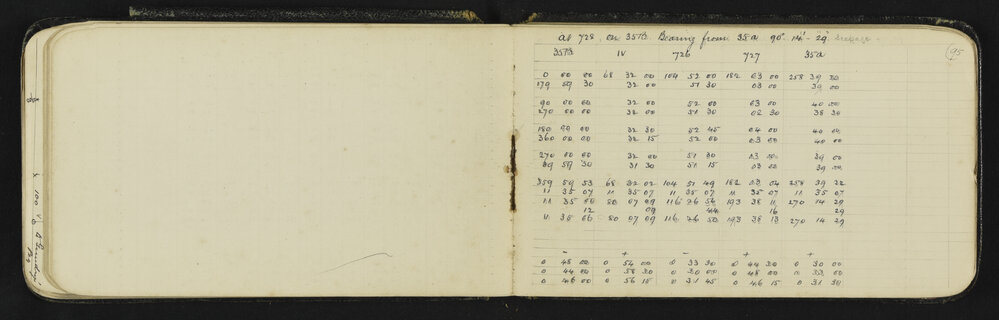 at 728 on 35TB Bearing from 35a 90° 14' 29"
95
35TB IV 726 727 35a
0 00 00 68 32 00 104 52 00 182 03 00 258 39 30
179 59 30 32 00 51 30 03 00 39 00
90 00 00 32 00 52 00 03 00 40 00
270 00 00 32 00 51 30 02 30 38 30
180 00 00 32 30 52 45 04 00 40 00
360 00 00 32 15 52 00 03 00 40 00
270 00 00 32 00 51 30 03 00 39 00
89 59 30 31 30 51 15 03 00 39 00
359 59 53 68 32 02 104 51 49 182 03 04 258 39 22
11 35 07 11 35 07 11 35 07 11 35 07 11 35 07
11 35 00 80 07 09 116 26 56 193 38 11 270 14 29
12 09 44 16 29
11 35 06 80 07 09 116 26 50 193 38 13 270 14 29
- + - + +
0 45 00 0 54 00 0 33 30 0 44 30 0 30 00
0 44 00 0 58 30 0 30 00 0 48 00 0 33 00
0 46 00 0 56 15 0 31 45 0 46 15 0 31 30
100